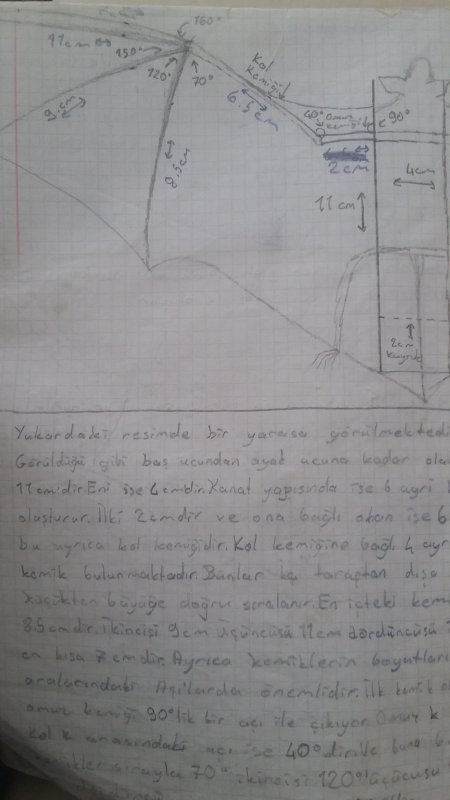 160°
11cm
150°
120°
70°
9.cm
8.5cm
Kol
Kemiği
6.5cm
40°
omuz
kemiği
90°
2cm
4cm
11cm
2cm
kuyruk
Yukardaki resimde bir yarasa görülmektedi
Görüldüğü gibi baş ucundan ayak ucuna kadar ola
11cmidir.Eni ise 4cmdir.Kanat yapısında ise 6 ayrı
oluşturur.İlki 2cmdir ve ona bağlı olan ise 6
bu ayrıca kol kemiğidir.Kol kemiğine bağlı 4 ayr
kemik bulunmaktadır.Bunlar iç taraftan dışa
küçükten büyüğe doğru sıralanır.En içteki kem
8.5cmdir.ikincisi 9cm üçüncüsü 11cm dördüncüsü
en kısa 7cmdir.Ayrıca kemiklerin boyutları
aralarındaki Açılarda önemlidir.İlk kemik ol
omuz kemiği 90°lik bir açı ile çıkıyor.Omuz k
kol k arasındaki açı ise 40°dir.Ve buna
mikler sırayla 70° ikincisi 120° üçüncüsü